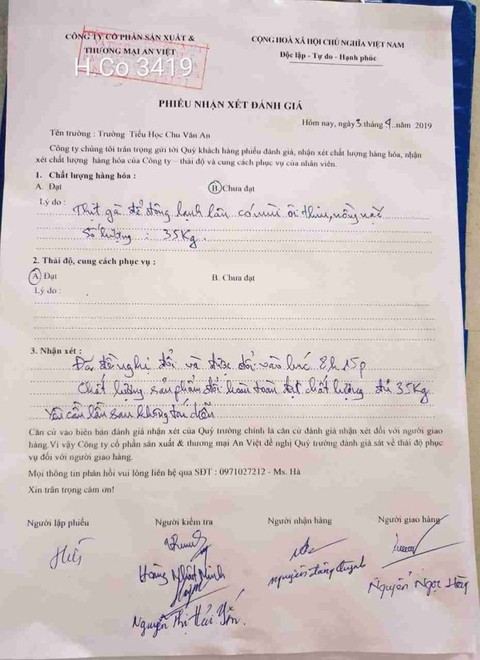 CÔNG TY CỔ PHẦN SẢN XUẤT &
THƯƠNG MẠI AN VIỆT
H.Co 3419
CỘNG HOÀ XÃ HỘI CHỦ NGHĨA VIỆT NAM
Độc lập - Tự do - Hạnh phúc
PHIẾU NHẬN XÉT ĐÁNH GIÁ
Hôm nay, ngày 3 tháng 4 năm 2019
Tên trường : Trường Tiểu Học Chu Văn An
Công ty chúng tôi trân trọng gửi tới Quý khách hàng phiếu đánh giá, nhận xét chất lượng hàng hóa, nhận
xét chất lượng hàng hóa của Công ty – thái độ và cung cách phục vụ của nhân viên.
1. Chất lượng hàng hóa :
A. Đạt B. Chưa đạt
Lý do : Thịt gà để đông lạnh lâu có mùi ôi thiu, nồng nặc
Số lượng : 35Kg.
2. Thái độ, cung cách phục vụ :
A. Đạt B. Chưa đạt
Lý do :
3. Nhận xét : Đã đề nghị đổi và được đổi vào lúc 8h15p
Chất lượng sản phẩm đổi hoàn toàn đạt chất lượng đủ 35Kg
Yêu cầu lần sau không tái diễn
Căn cứ vào biên bản đánh giá nhận xét của Quý trường chính là căn cứ đánh giá nhận xét đối với người giao
hàng.Vì vậy Công ty cổ phần sản xuất & thương mại An Việt đề nghị Quý trường đánh giá sát về thái độ phục
vụ đối với người giao hàng.
Mọi thông tin phản hồi vui lòng liên hệ qua SĐT : 0971027212 - Ms. Hà
Xin trân trọng cảm ơn!
Người lập phiếu Người kiểm tra Người nhận hàng Người giao hàng
Hoàng Nhật Minh
Nguyễn Thị Hải Yến
Nguyễn Ngọc